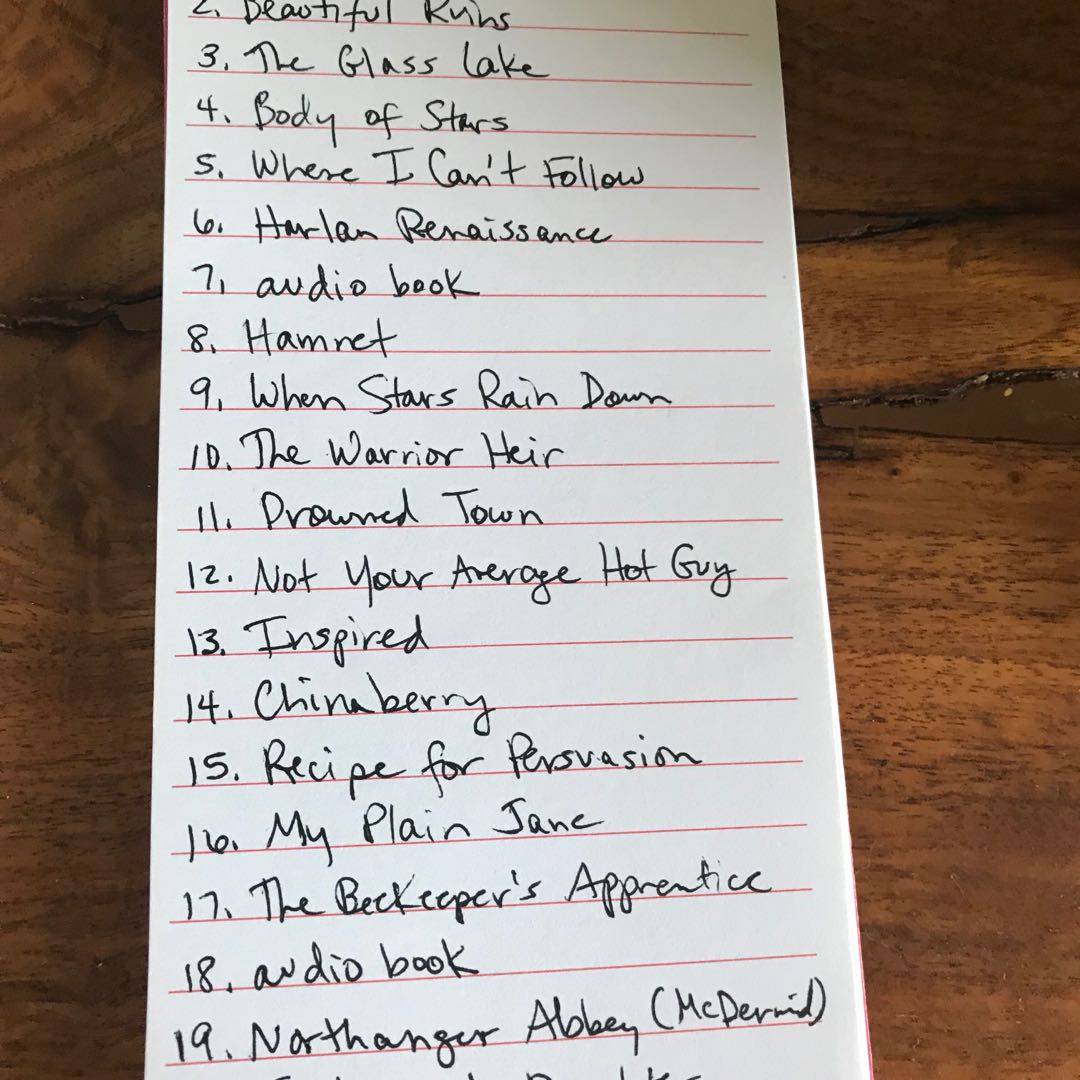 2. Beautiful Ruins
3. The Glass Lake
4. Body of Stars
5. Where I Can't Follow
6. Harlan Renaissance
7. audio book
8. Hamnet
9. When Stars Rain Down
10. The Warrior Heir
11. Drowned Town
12. Not Your Average Hot Guy
13. Inspired
14. Chinaberry
15. Recipe for Persuasion
16. My Plain Jane
17. The Beekeeper's Apprentice
18. audio book
19. Northanger Abbey (McDermid)